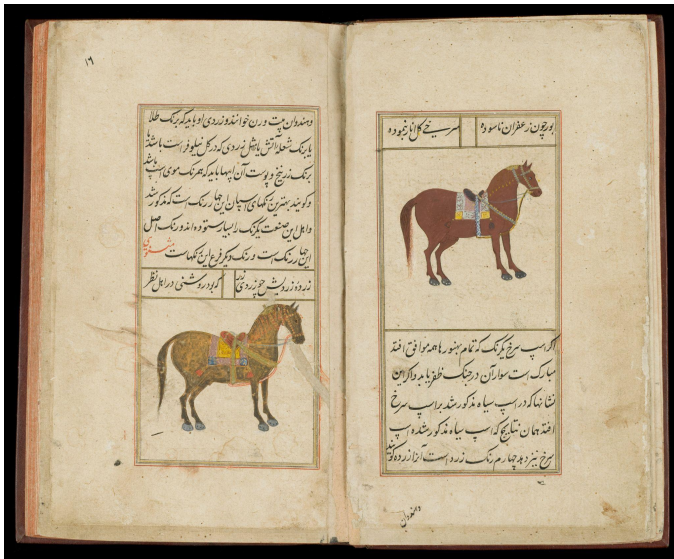 بور چون زعفران ناسوده سرخی گل انار نموده
اگر اسپ سرخ یکرنگ که تمام بهنورها همه موافق افتد
مبارک است سوار آن در جنگ ظفر یابد و اگر این
نشانها که در اسپ سیاه مذکور شد بر اسپ سرخ
افتد همان نتایج که اسپ سیاه مذکور شده اسپ
سرخ نیز دهد چهارم رنگ زرد است آنرا زرده گویند
و هندوان
۱۶
و هندوان پیت ورن خوانند و زردی او باید که برنگ طلا
یا برنگ شعله آتش یا مثل زردی که در گل نیلوفر است باشد یا
برنگ زرنیخ و پوست آن اسپها باید که همرنگ موی اسپ باشد
و گویند بهترین رنگهای اسپان این چهار رنگ است که مذکور شد
و اهل این صنعت یکرنگ را بسیار ستوده اند و رنگ اصل
این چهار رنگ است و رنگ دیگر فرع این رنگهاست مثنوی
زرده زردیش چو زردی زر که بود روشنی در اهل نظر